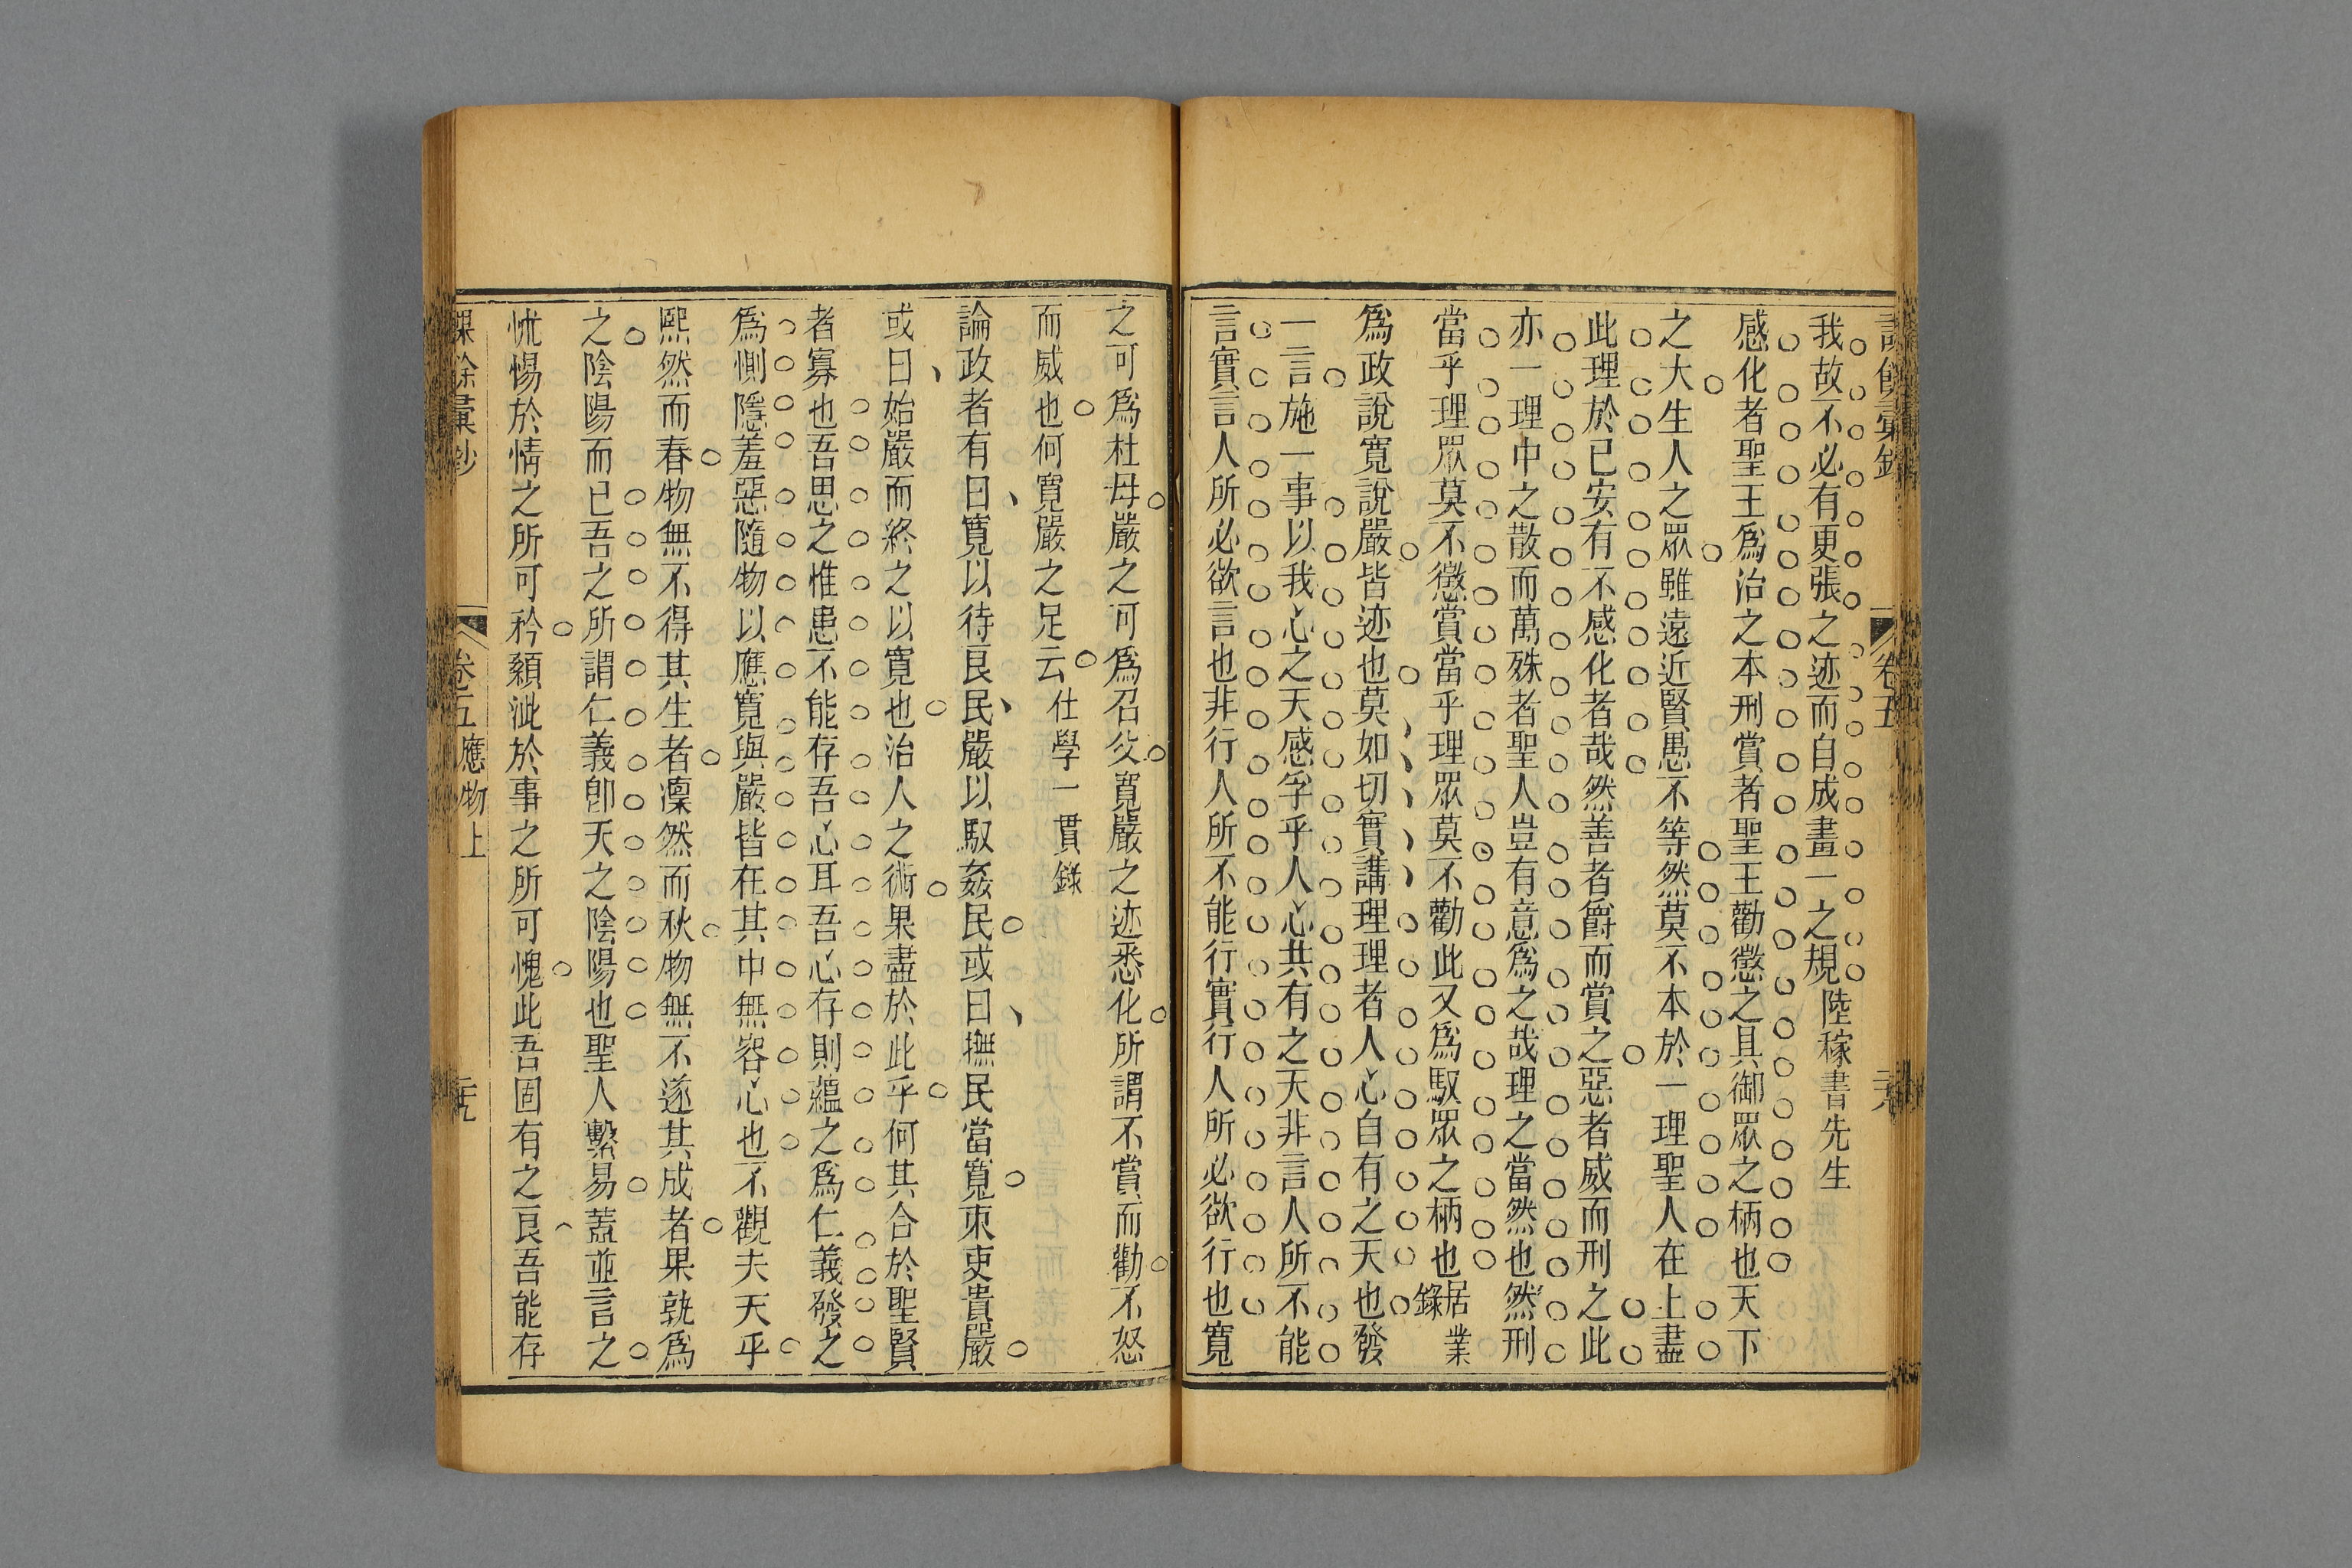 課餘彙鈔 卷五
我故不必有更張之迹而自成畫一之規陸稼書先生
感化者聖王爲治之本刑賞者聖王勸懲之具御眾之柄也天下
之大生人之眾雖遠近賢愚不等然莫不本於一理聖人在上盡
此理於已安有不感化者哉然善者爵而賞之惡者威而刑之此
亦一理中之散而萬殊者聖人豈有意爲之哉理之當然也然刑
當乎理眾莫不懲賞當乎理眾莫不勸此又爲馭眾之柄也居業錄
爲政說寬說嚴皆迹也莫如切實講理理者人心自有之天也發
一言施一事以我心之天感孚乎人心共有之天非言人所不能
言實言人所必欲言也非行人所不能行實行人所必欲行也寬
之可爲杜母嚴之可爲召父寬嚴之迹悉化所謂不賞而勸不怒
而威也何寬嚴之足云仕學一貫錄
論政者有曰寬以待良民嚴以馭姦民或曰撫民當寬束吏貴嚴
或曰始嚴而終之以寬也治人之術果盡於此乎何其合於聖賢
者寡也吾思之惟患不能存吾心耳吾心存則蘊之爲仁義發之
爲惻隱羞惡隨物以應寬與嚴皆在其中無容心也不觀夫天乎
熙然而春物無不得其生者凛然而秋物無不遂其成者果孰爲
之陰陽而已吾之所謂仁義卽天之陰陽也聖人繫易蓋並言之
怵惕於情之所可矜顙泚於事之所可愧此吾固有之良吾能存
課餘彙鈔 卷五應物上